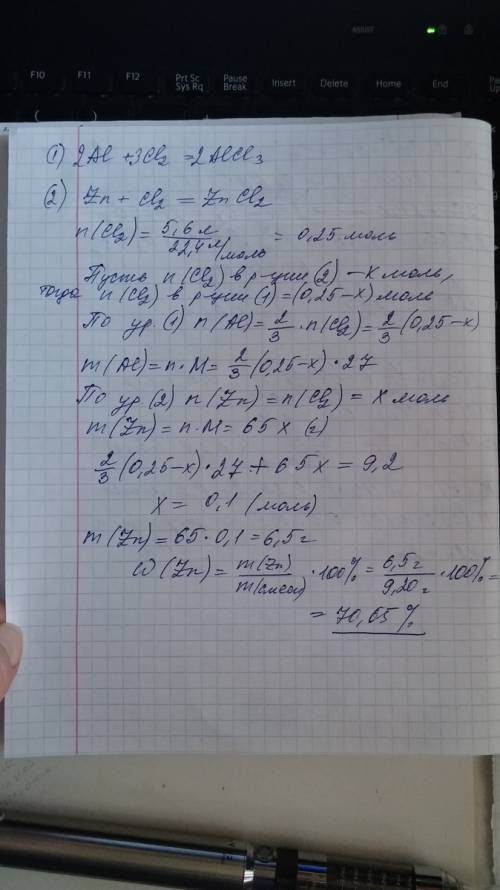 ASSIST
F10 F11 F12 Prt Sc Sys Rq Pause Break Insert Delete Home End
① 2Al + 3Cl₂ = 2AlCl₃
② Zn + Cl₂ = ZnCl₂
n(Cl₂) = 5,6 л / 22,4 л/моль = 0,25 моль
Пусть n(Cl₂) в р-ции (2) – x моль,
тогда n(Cl₂) в р-ции (1) = (0,25 – x) моль
По ур. (1) n(Al) = 2/3 · n(Cl₂) = 2/3 (0,25 – x)
m(Al) = n · M = 2/3 (0,25 – x) · 27
По ур. (2) n(Zn) = n(Cl₂) = x моль
m(Zn) = n · M = 65x (г)
2/3 (0,25 – x) · 27 + 65x = 9,2
x = 0,1 (моль)
m(Zn) = 65 · 0,1 = 6,5 г
W(Zn) = m(Zn) / m(смеси) · 100% = 6,5 г / 9,20 г · 100% =
= 70,65 %